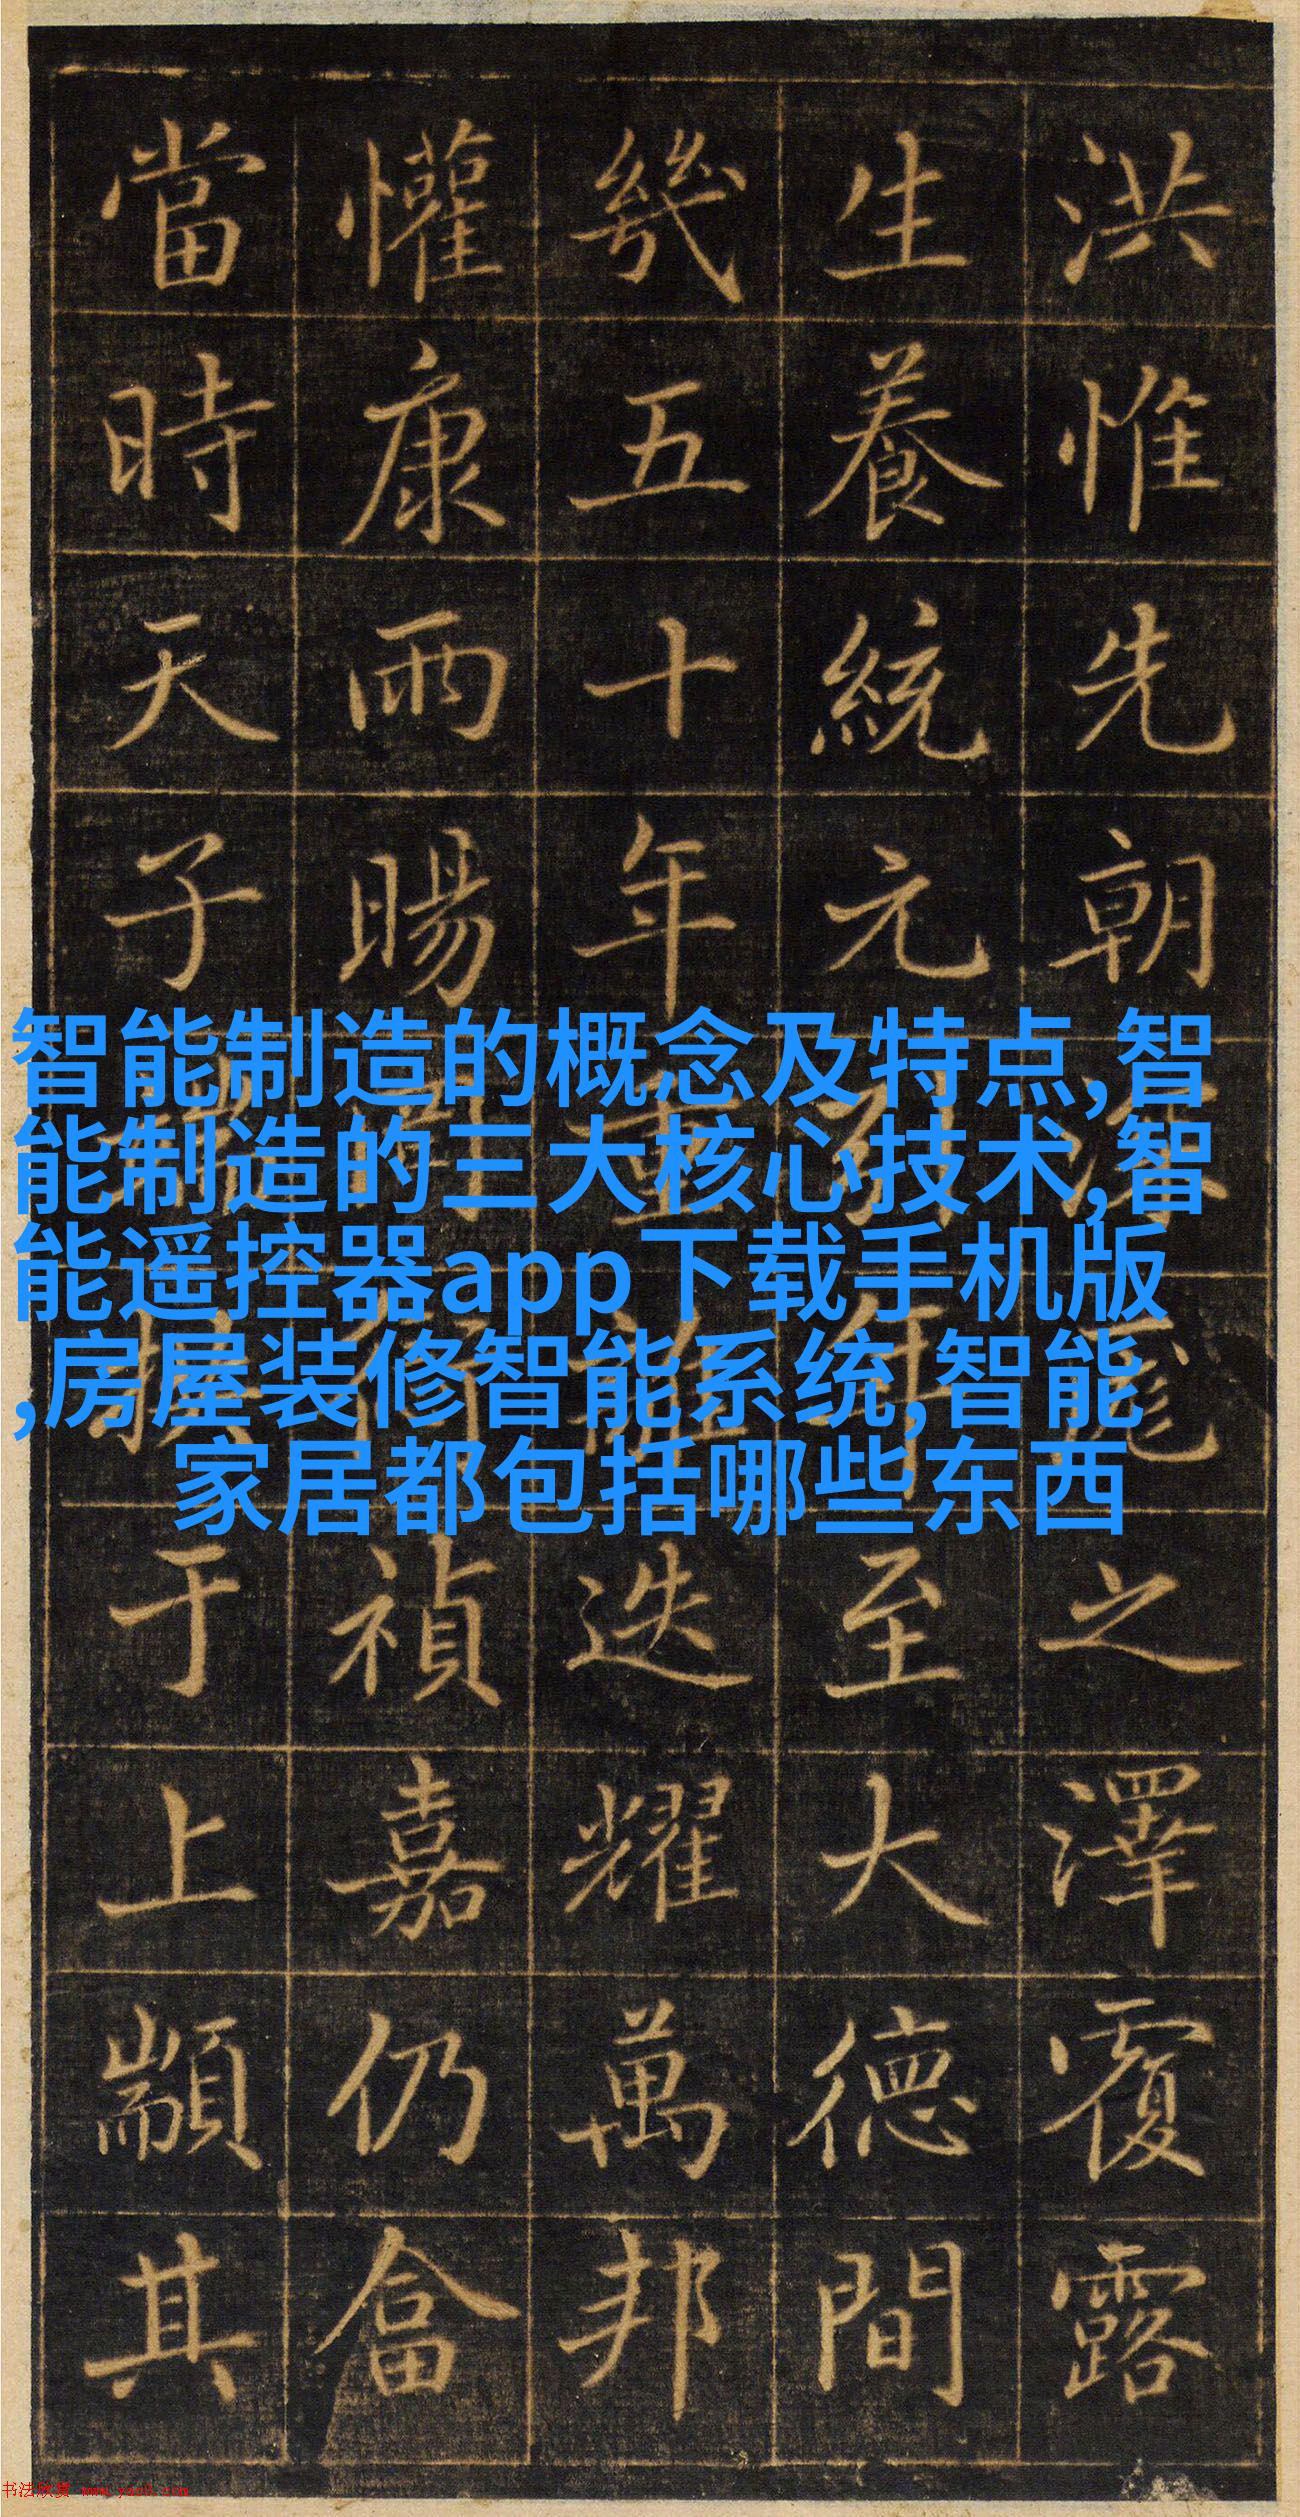 洪惟先朝之澤覆露
生養統元至大德間
幾五十年重迭耀萬邦
懽康雨暘禎嘉仍畣
當時天子于上顓其
智能制造的概念及特点,智
能制造的三大核心技术,智
能遥控器app下载手机版
,房屋装修智能系统,智能
家居都包括哪些东西
书法欣赏 www.yac8.com